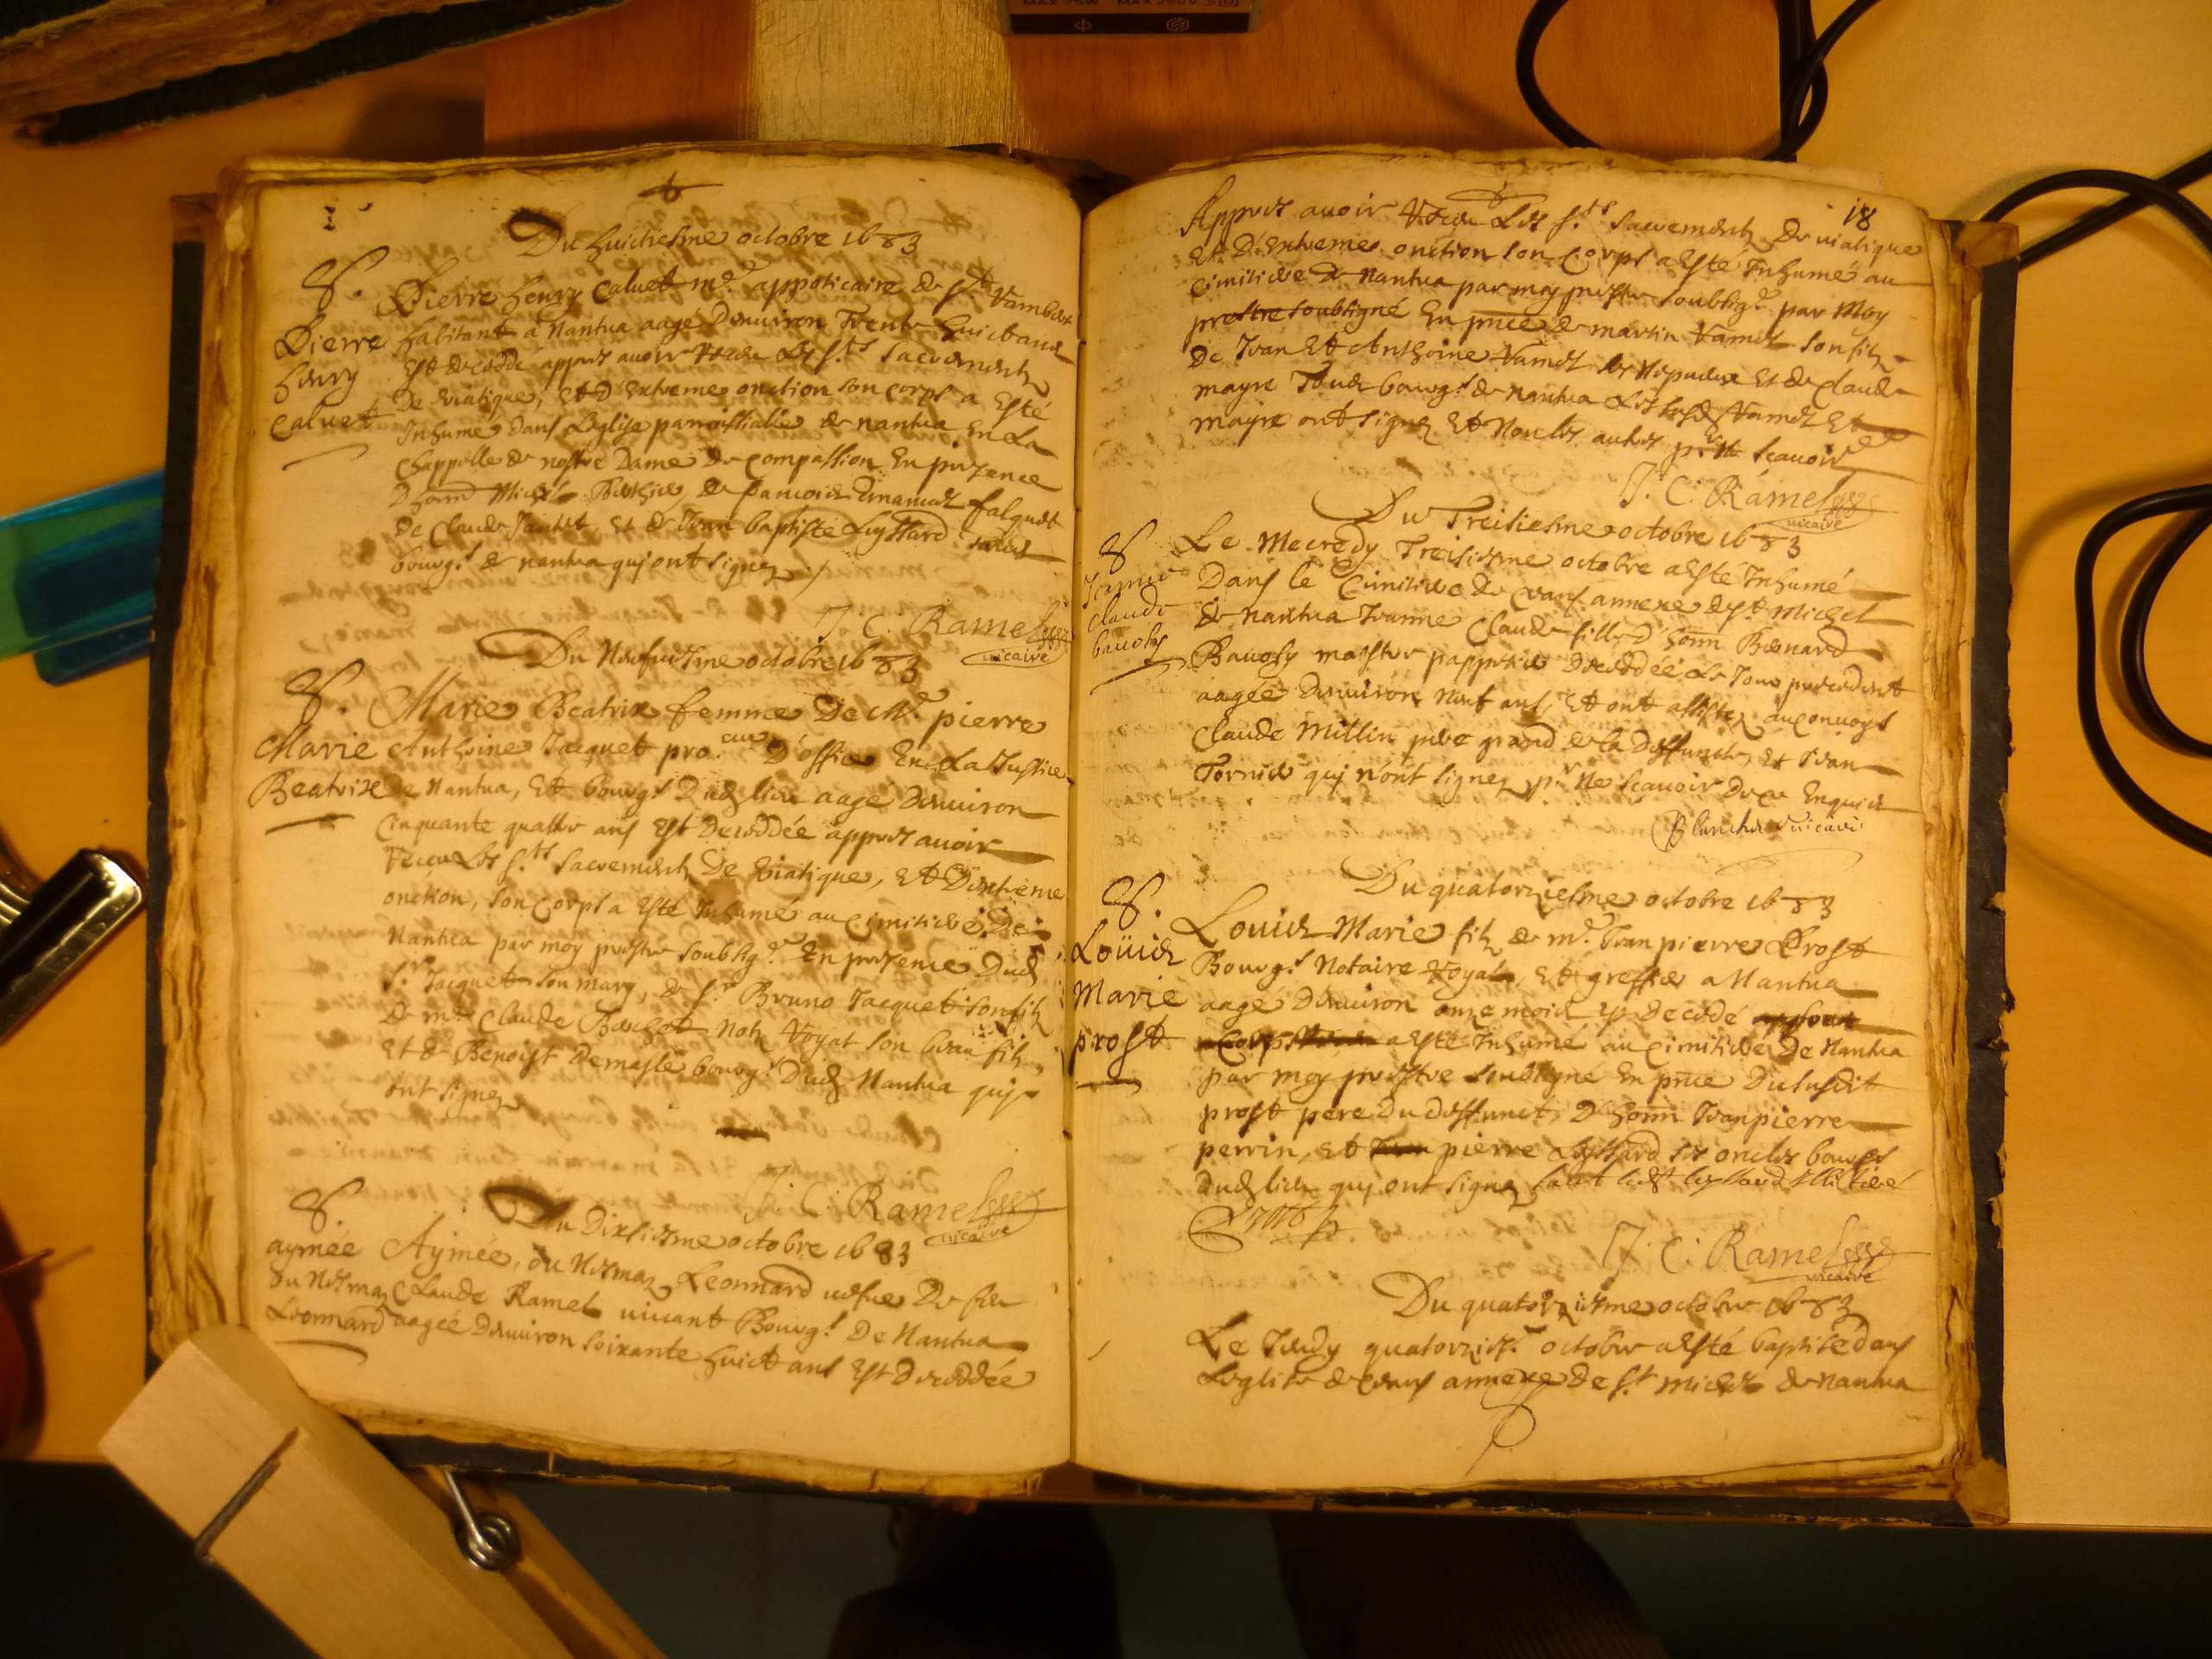 Du huictiesme octobre 1683
S.
Pierre
henry
Caluet
Pierre henry Caluet m.e appoticaire de St Rambert
habitant a Nantua aagé Denuiron Trente huict ans
Est decedé appres auoir Receu Les s.ts sacrements
De Viatique, Et D'Extreme onction son corps a Esté
Inhumé dans L'eglise parroissialle de nantua En La
Chappelle de nostre Dame De Compassion En presence
D'honn Michel de francois Emanuel falquet
de Claude Et de Jean baptiste tous
bourg.s de nantua quj ont signez
J. C. Ramel
vicaire
Du Neufuiesme octobre 1683
S.
Marie
Beatrix
Marie Beatrix femme De M.e pierre
Anthoine Jacquet pro.eur D'office En La Justice
de Nantua, Et bourg.s Dud lieu aagé Denuiron
Cinquante quattre ans Est Decedée appres auoir
Receu Les s.ts sacrements De Viatique, Et D'extreme
onction, son corps a Esté Inhumé au cimitiere De
Nantua par moy prestre soubsig.é En presence Dud
s.r Jacquet son mary, de s.r Bruno Jacquet son filz
de m.e Claude not. Royal son beau filz,
Et de Benoist Demaslé bourg.s Dud Nantua quj
ont signez
J. C. Ramel
vicaire
Du Dixiesme octobre 1683
S.
aymée
ou Nesmaz
Leonnard
Aymée, ou Nesmaz Leonnard uefue De feu
Claude Ramel uiuant Bourg.s De Nantua
aagée Denuiron soixante huict ans Est decedée
18
Appres auoir Receu Les s.ts sacrements De uiatique
Et D'Extreme onction son Corps a Esté Inhumé au
cimitiere De Nantua par moy prestre soubsig.é par Moy
prestre soubsigné En pnce de martin Ramel son filz
De Jean Et Anthoine Ramel ses Nepueux Et de Claude
mayre Tous bourg.s de Nantua Les susd Ramel Et
mayre ont signez Et Non les autres p.r ne scauoir
J. C. Ramel
vicaire
Du Treisiesme octobre 1683
S
Jeanne
Claude
Le Mecredy Treisiesme octobre a Esté Inhumé
Dans le Cimitiere de annexe de St Michel
de nantua Jeanne Claude fille d'honn Bernard
maistre pappetier Decedée Le Jour precedent
aagée Denuiron neuf ans, Et ont assistez au conuoy
Claude Millin pere grand de la Deffuncte, Et Jean
quj n'ont signez p.r Ne scauoir De ce Enquis
vicaire
Du quatorziesme octobre 1683
S.
Loüis
Marie
prost
Louis Marie filz de m.e Jean pierre Prost
Bourg.s Notaire Royal, Et greffier a Nantua
aagé Denuiron onze mois Est Decedé
a Esté Inhumé au cimitiere De Nantua
par moy prestre soubsigné En pnce Du susdit
prost pere Du deffunct, D'honn Jean pierre
perrin, Et pierre ses oncles bourgs
dud lieu quj ont signez sauf illitéré
Prost
J. C. Ramel
vicaire
Du quatorziesme octobre 1683
Le Jeudy quatorzies. octobre a Esté baptisé dans
L'eglise de annexe De S.t michel de Nantua